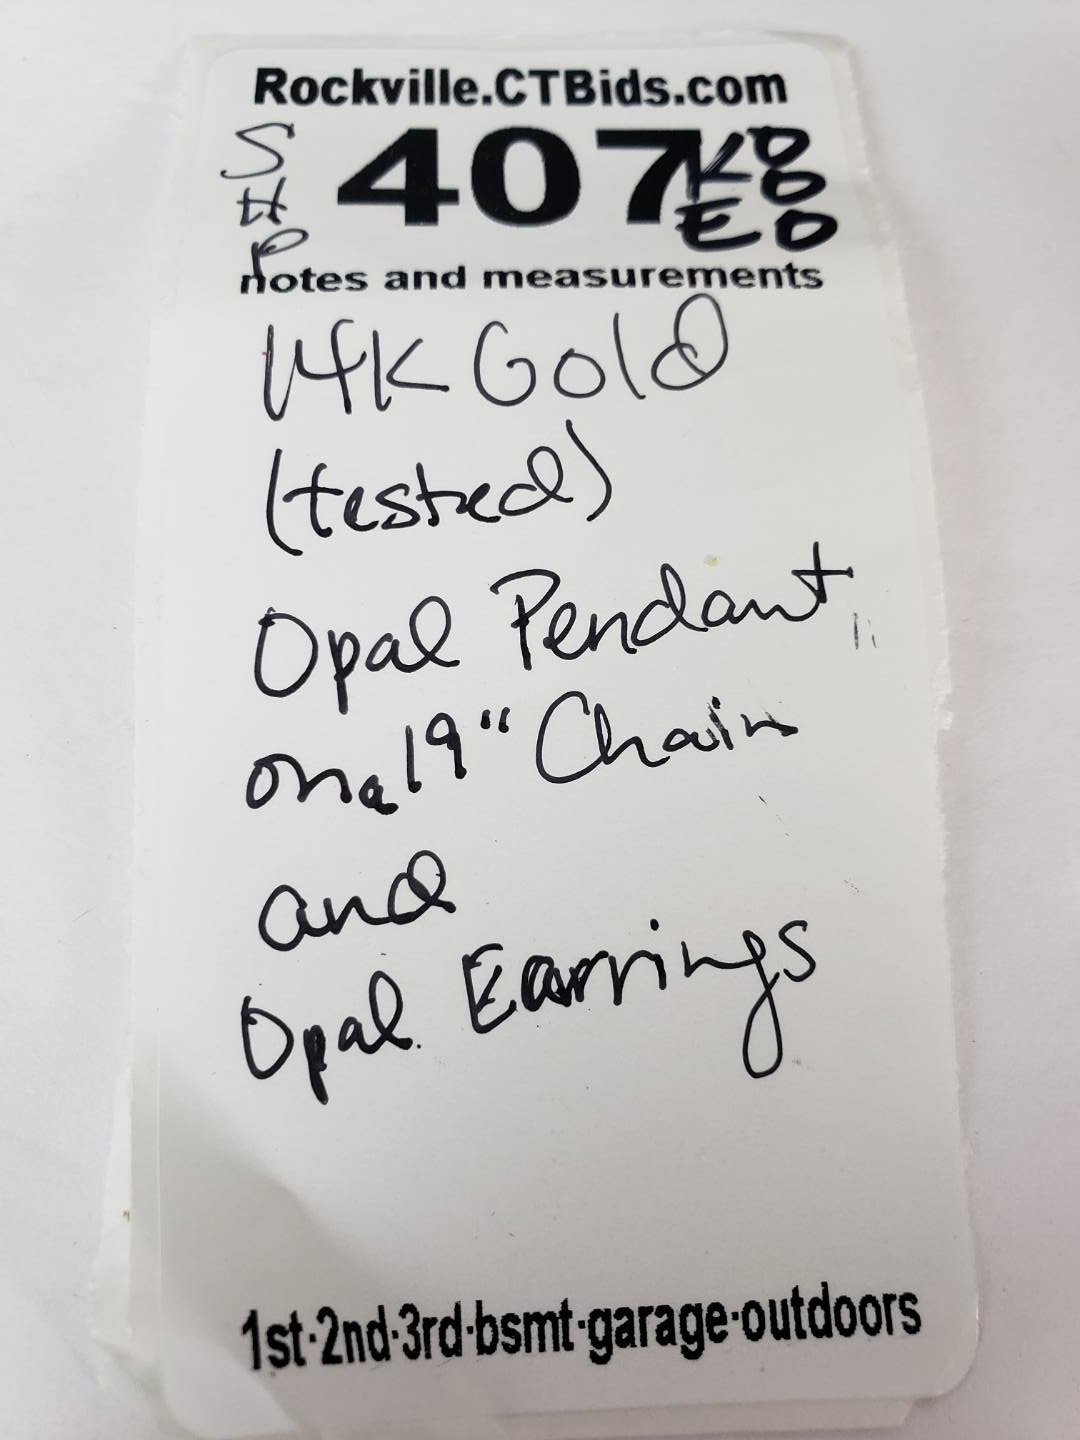 Rockville.CTBids.com
SHP 407 KO EO
notes and measurements
14K Gold
(tested)
Opal Pendant
on a 19" Chain
and
Opal Earrings
1st·2nd·3rd·bsmt·garage·outdoors